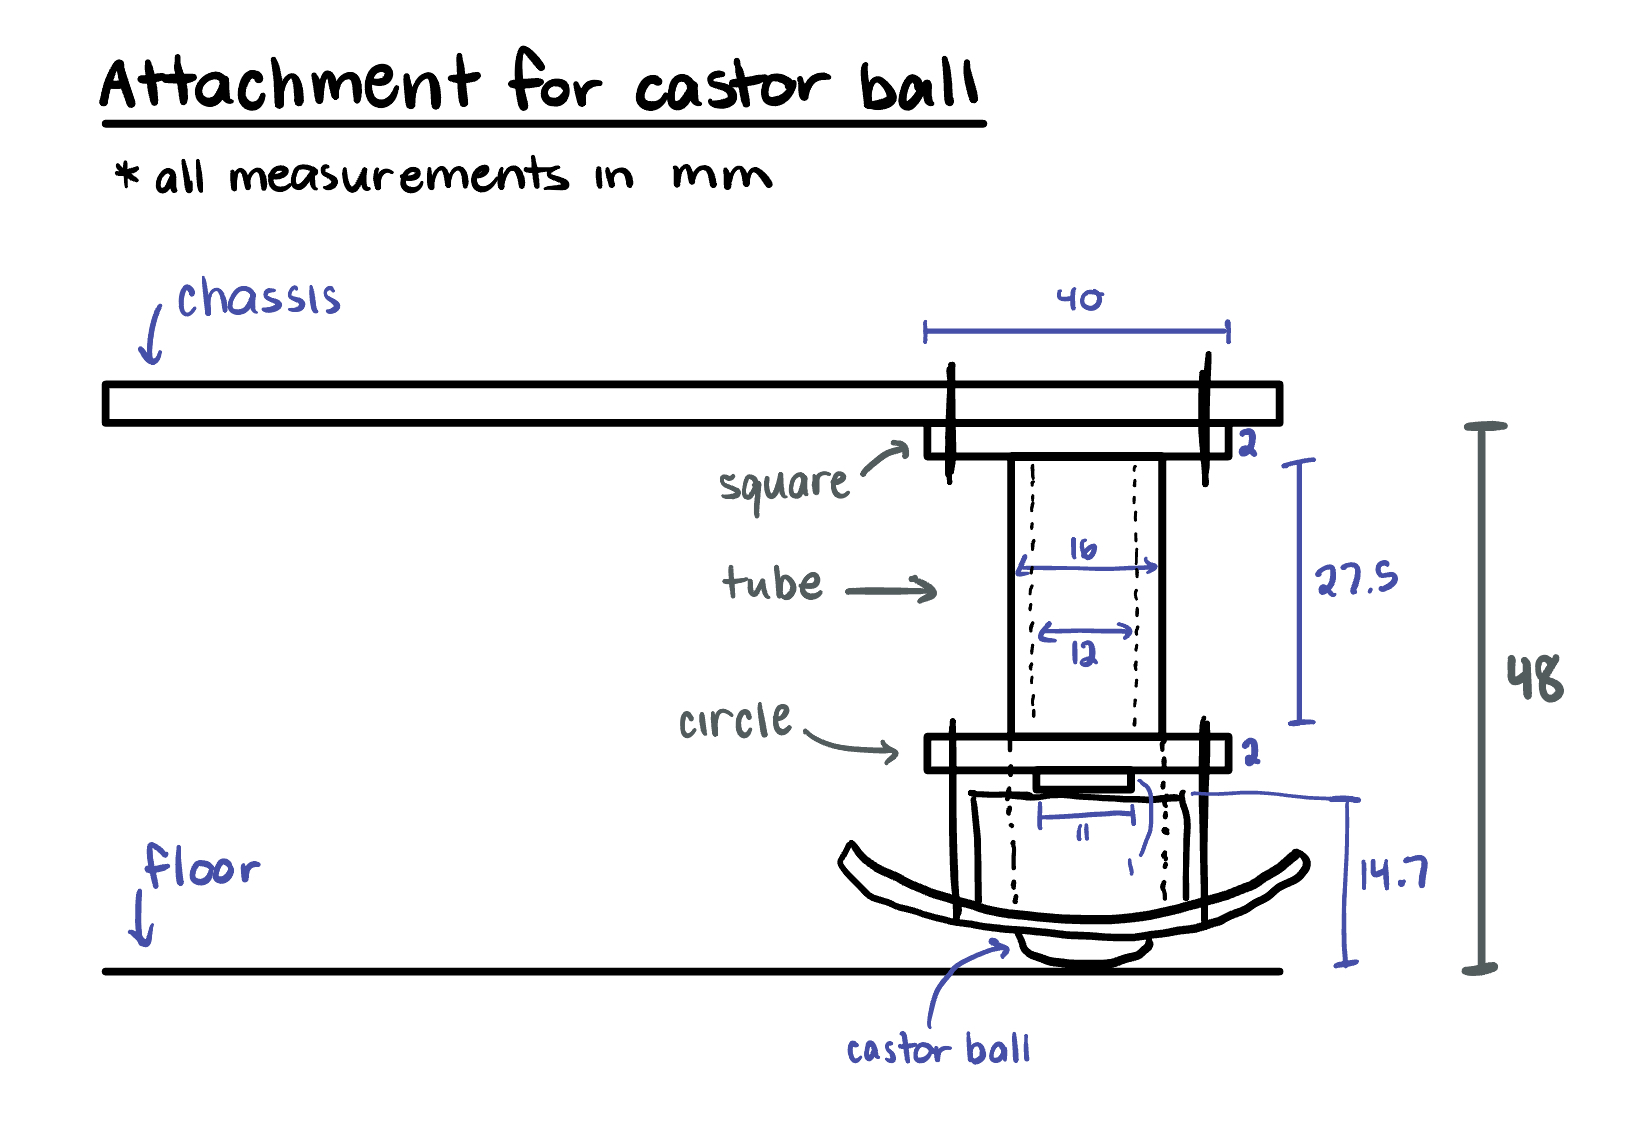 Attachment for castor ball
* all measurements in mm
chassis
40
square
2
tube
16
12
27.5
48
circle
2
11
1
14.7
floor
castor ball